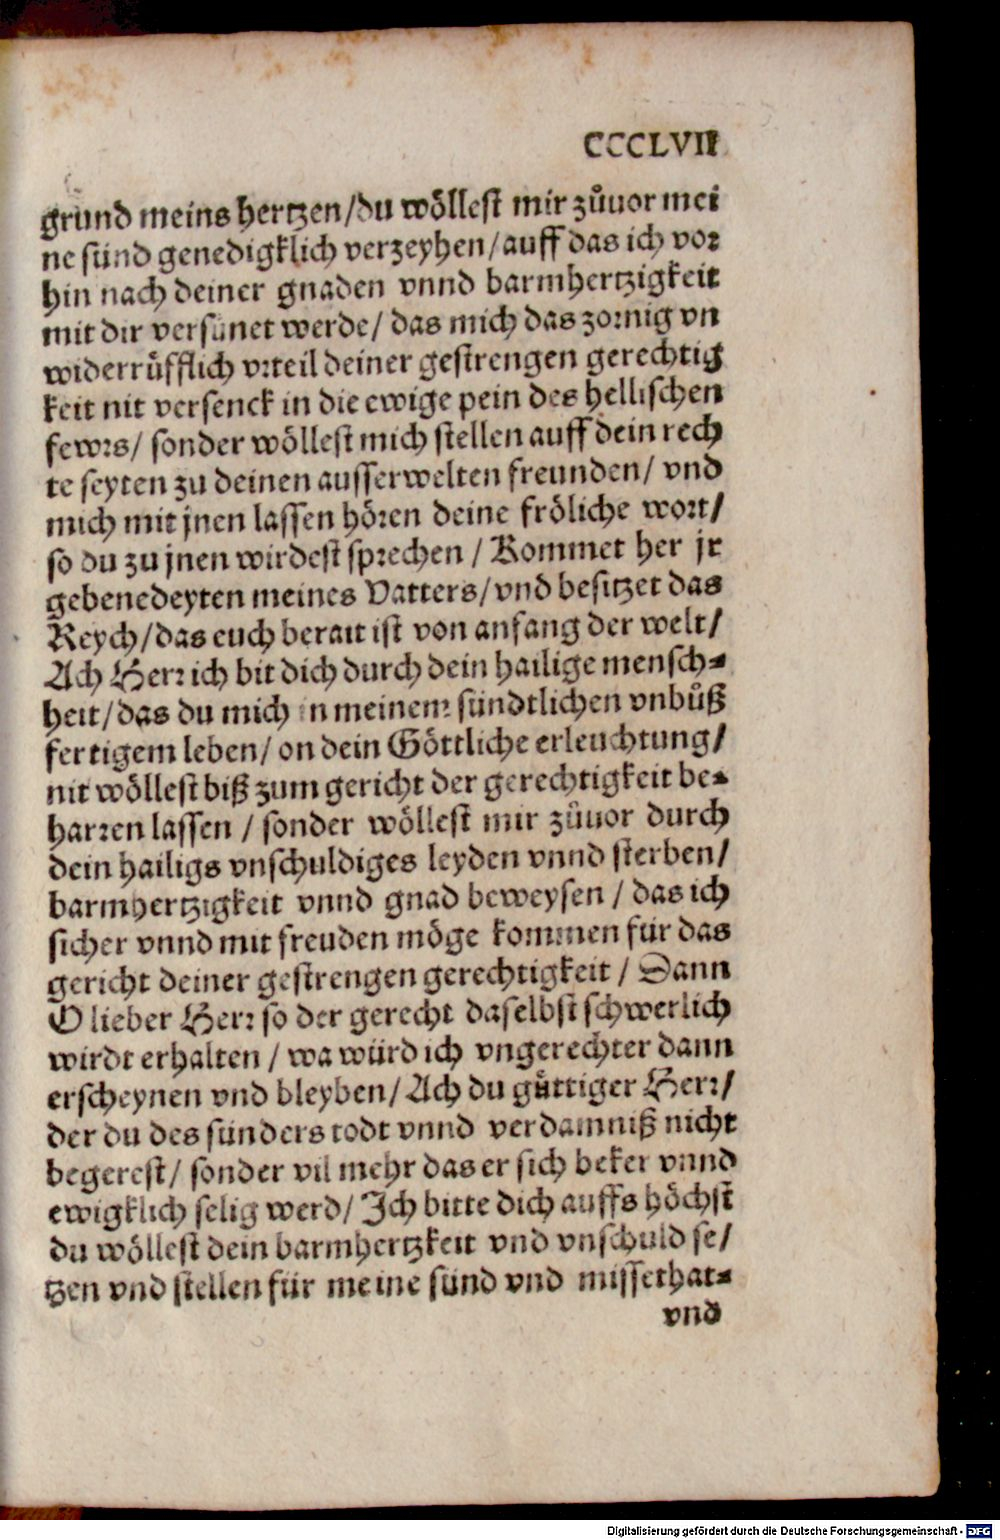 CCCLVII
grund meins hertzen/du wöllest mir zůuor mei
ne sünd genedigklich verzeyhen/auff das ich vor
hin nach deiner gnaden vnnd barmhertzigkeit
mit dir versünet werde/ das mich das zornig vn
widerrůfflich vrteil deiner gestrengen gerechtig
keit nit versenck in die ewige pein des hellischen
fewrs/ sonder wöllest mich stellen auff dein rech
te seyten zu deinen ausserwelten freunden/ vnd
mich mit jnen lassen hören deine fröliche wort/
so du zu jnen wirdest sprechen / Kommet her jr
gebenedeyten meines Vatters/vnd besitzet das
Reych/das euch berait ist von anfang der welt/
Ach Herr ich bit dich durch dein hailige mensch-
heit/das du mich in meinem sündtlichen vnbůß
fertigem leben/ on dein Göttliche erleuchtung/
nit wöllest biß zum gericht der gerechtigkeit be-
harren lassen / sonder wöllest mir zůuor durch
dein hailigs vnschuldiges leyden vnnd sterben/
barmhertzigkeit vnnd gnad beweysen / das ich
sicher vnnd mit freuden möge kommen für das
gericht deiner gestrengen gerechtigkeit / Dann
O lieber Herr so der gerecht daselbst schwerlich
wirdt erhalten / wa würd ich vngerechter dann
erscheynen vnd bleyben/ Ach du gůttiger Herr/
der du des sünders todt vnnd verdamniß nicht
begerest/ sonder vil mehr das er sich beker vnnd
ewigklich selig werd/ Ich bitte dich auffs höchst
du wöllest dein barmhertzkeit vnd vnschuld se/
tzen vnd stellen für meine sünd vnd missethat-
vnd
Digitalisierung gefördert durch die Deutsche Forschungsgemeinschaft - DFG